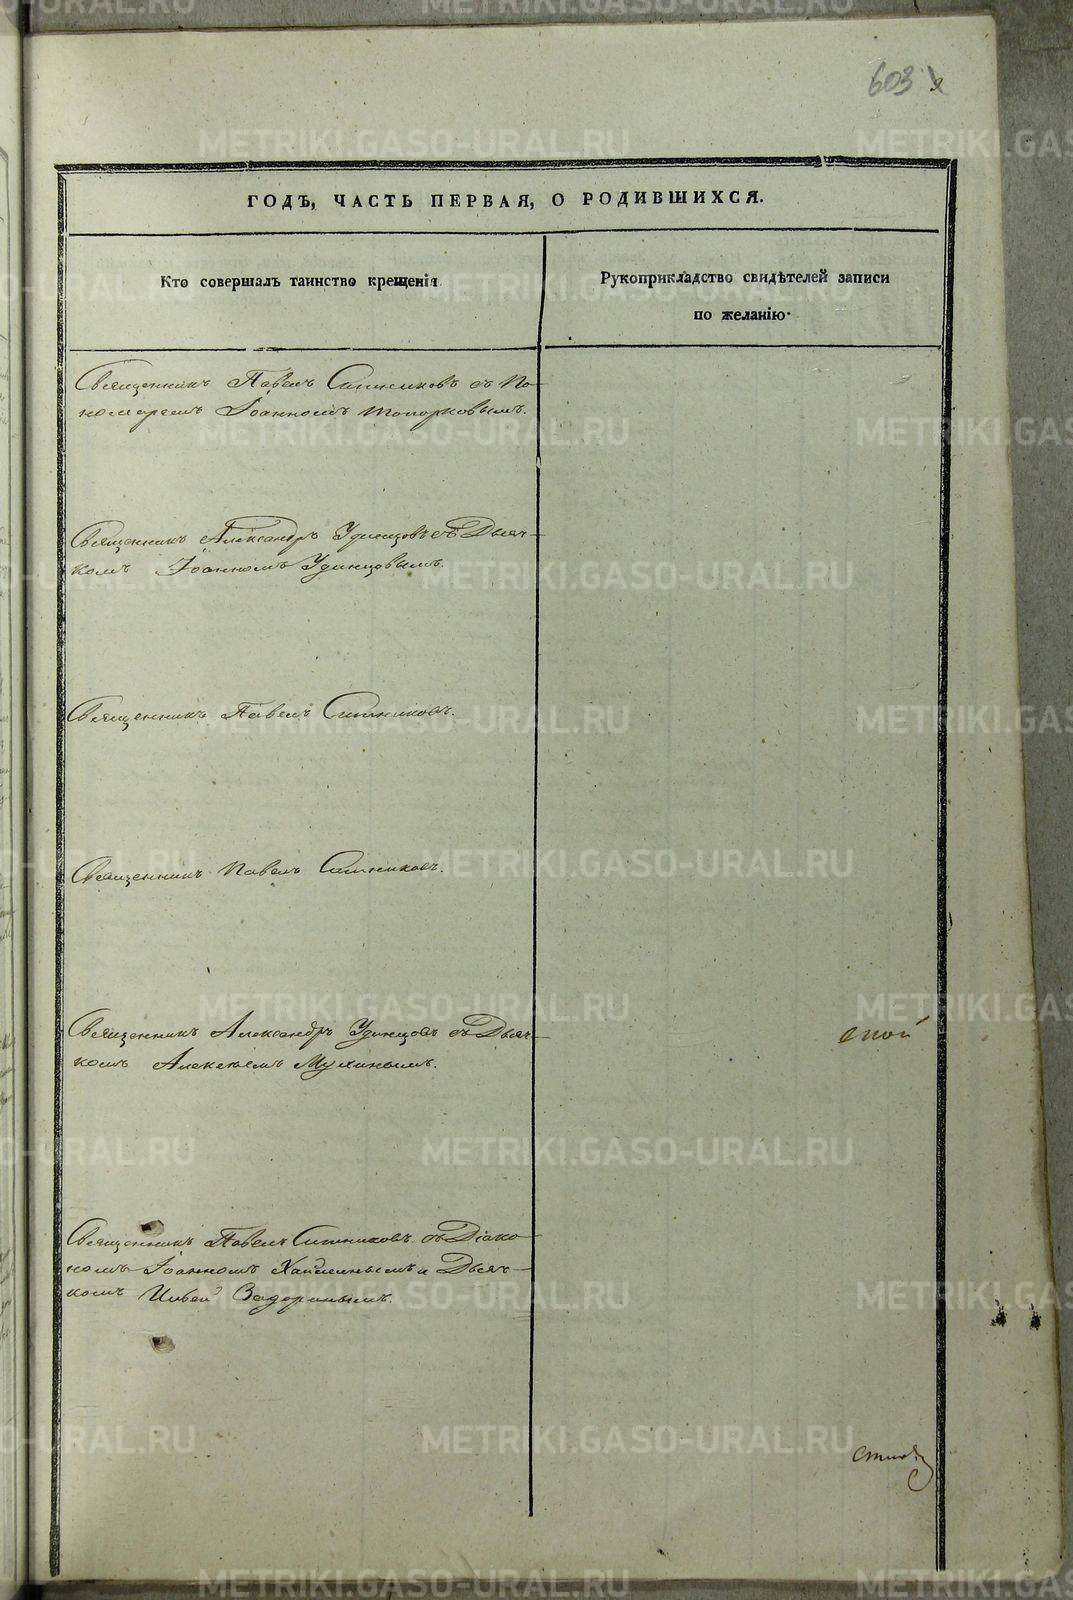 603
ГОДЪ, ЧАСТЬ ПЕРВАЯ, О РОДИВШИХСЯ.
Кто совершалъ таинство крещенія
Рукоприкладство свидѣтелей записи
по желанію.
Священникъ Павелъ Ситниковъ съ По-
номаремъ Іоанномъ Топорковымъ.
Священникъ Александръ Удинцовъ съ Дьяч-
комъ Іоанномъ Удинцовымъ.
Священникъ Павелъ Ситниковъ.
Священникъ Павелъ Ситниковъ.
Священникъ Александръ Удинцовъ съ Дьяч-
комъ Алексѣемъ Мухинымъ.
ской
Священникъ Павелъ Ситниковъ съ Діако-
номъ Іоанномъ и Дьяч-
комъ Задоринымъ.
METRIKI.GASO-URAL.RU